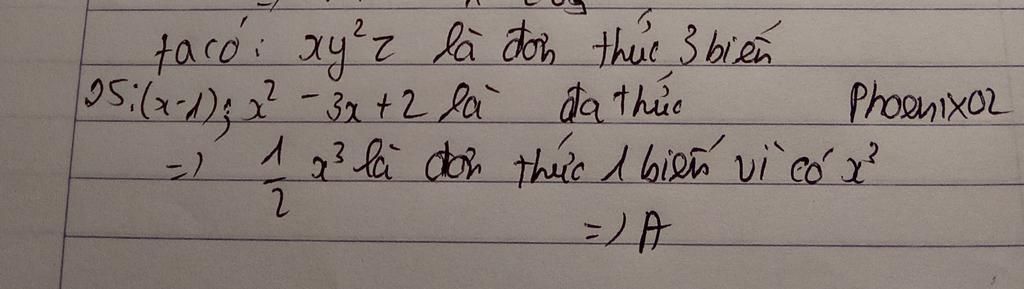 ta có: xy²z là đơn thức 3 biến
25:(x-1); x² - 3x + 2 là đa thức Phoenix02
=) 1/2 x³ là đơn thức 1 biến vì có x³
=) A